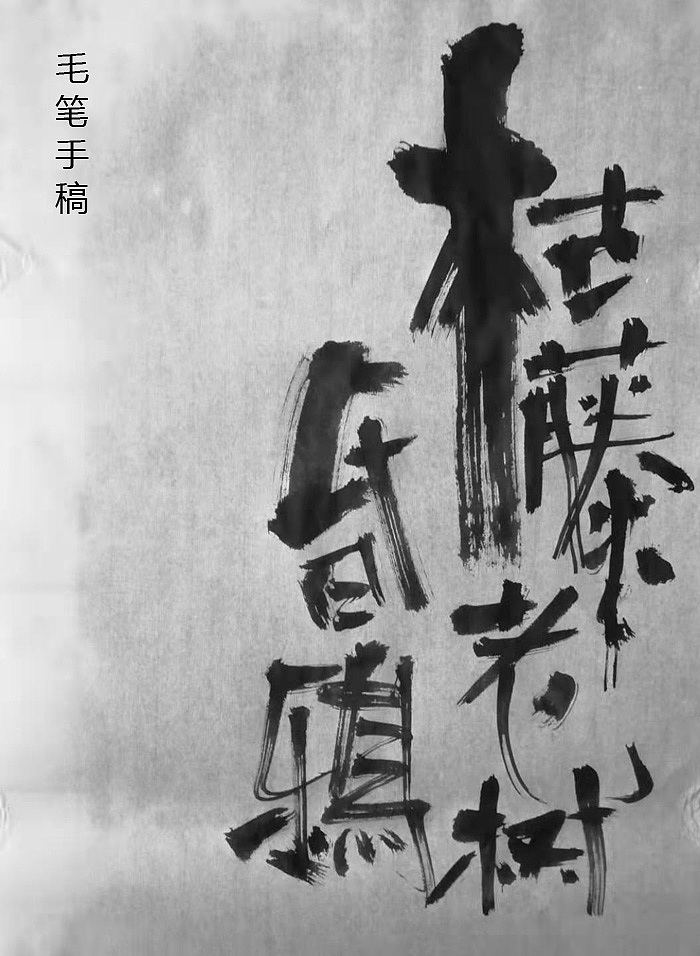 枯藤老树
昏鸦
毛笔手稿